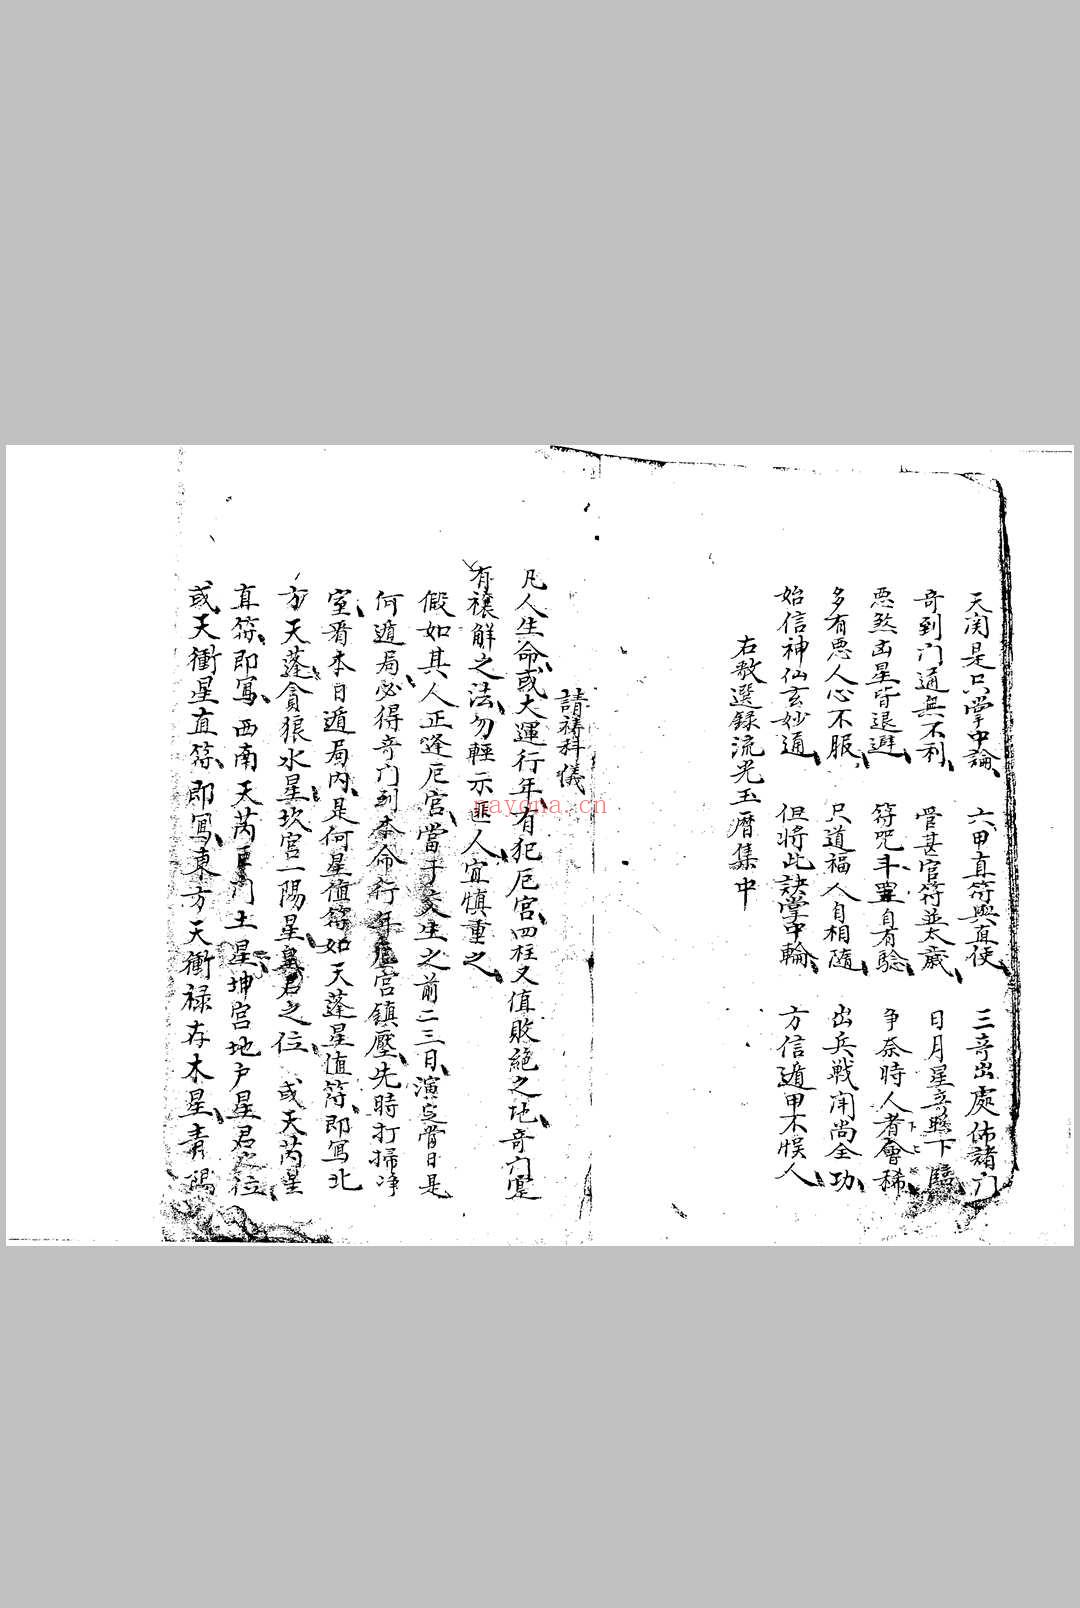 天関是只掌中論　六甲直符與直使　三奇出處佈諸门
奇到门通無不利　管甚官符並太歲　日月星奇照下臨
悪煞凶星皆退避　符咒斗罡自有驗　争奈時人者會稀
多有悪人心不服　只道福人自相隨　出兵戦闘尚全功
始信神仙玄妙通　但将此訣掌中輪　方信遁甲不悮人
右歌選録流光玉曆集中
請禱科儀
凡人生命或大運行年有犯厄宫四柱又值敗絶之地奇门寔
有禳解之法勿輕示匪人宜慎重之
假如其人正逢厄宫當于交生之前二三日演定看日是
何遁局必得奇门到本命行年厄宫鎮壓先時打掃净
室看本日遁局内是何星值符如天蓬星值符即寫北
方天蓬貪狼水星坎宫一陽星皇君之位或天芮星
直符即寫西南天芮巨门土星坤宫地户星君之位
或天衝星直符即寫東方天衝禄存木星青陽
nayona.cn